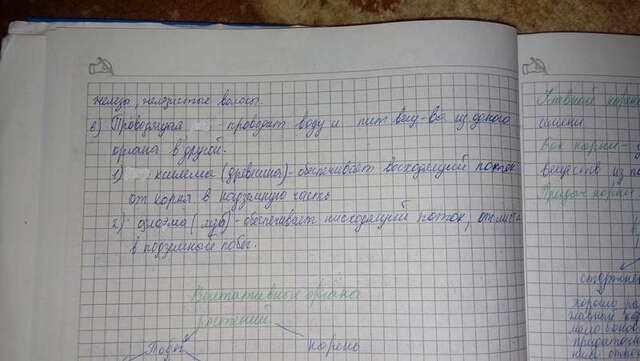 железы, железистые волосы.
в) Проводящая - проводит воду и пит вещ-ва из одного
органа в другой.
1) ксилема (древесина) - обеспечивает восходящий поток
от корня в надземную часть
2) флоэма (луб) - обеспечивает нисходящий поток, от листа
в подземный побег.
Вегетативные органы
растений
Побег
корень
Главный корень
Бок корни -
веществ из по
Придат корни
стержнев
хорошо ра
главный кор